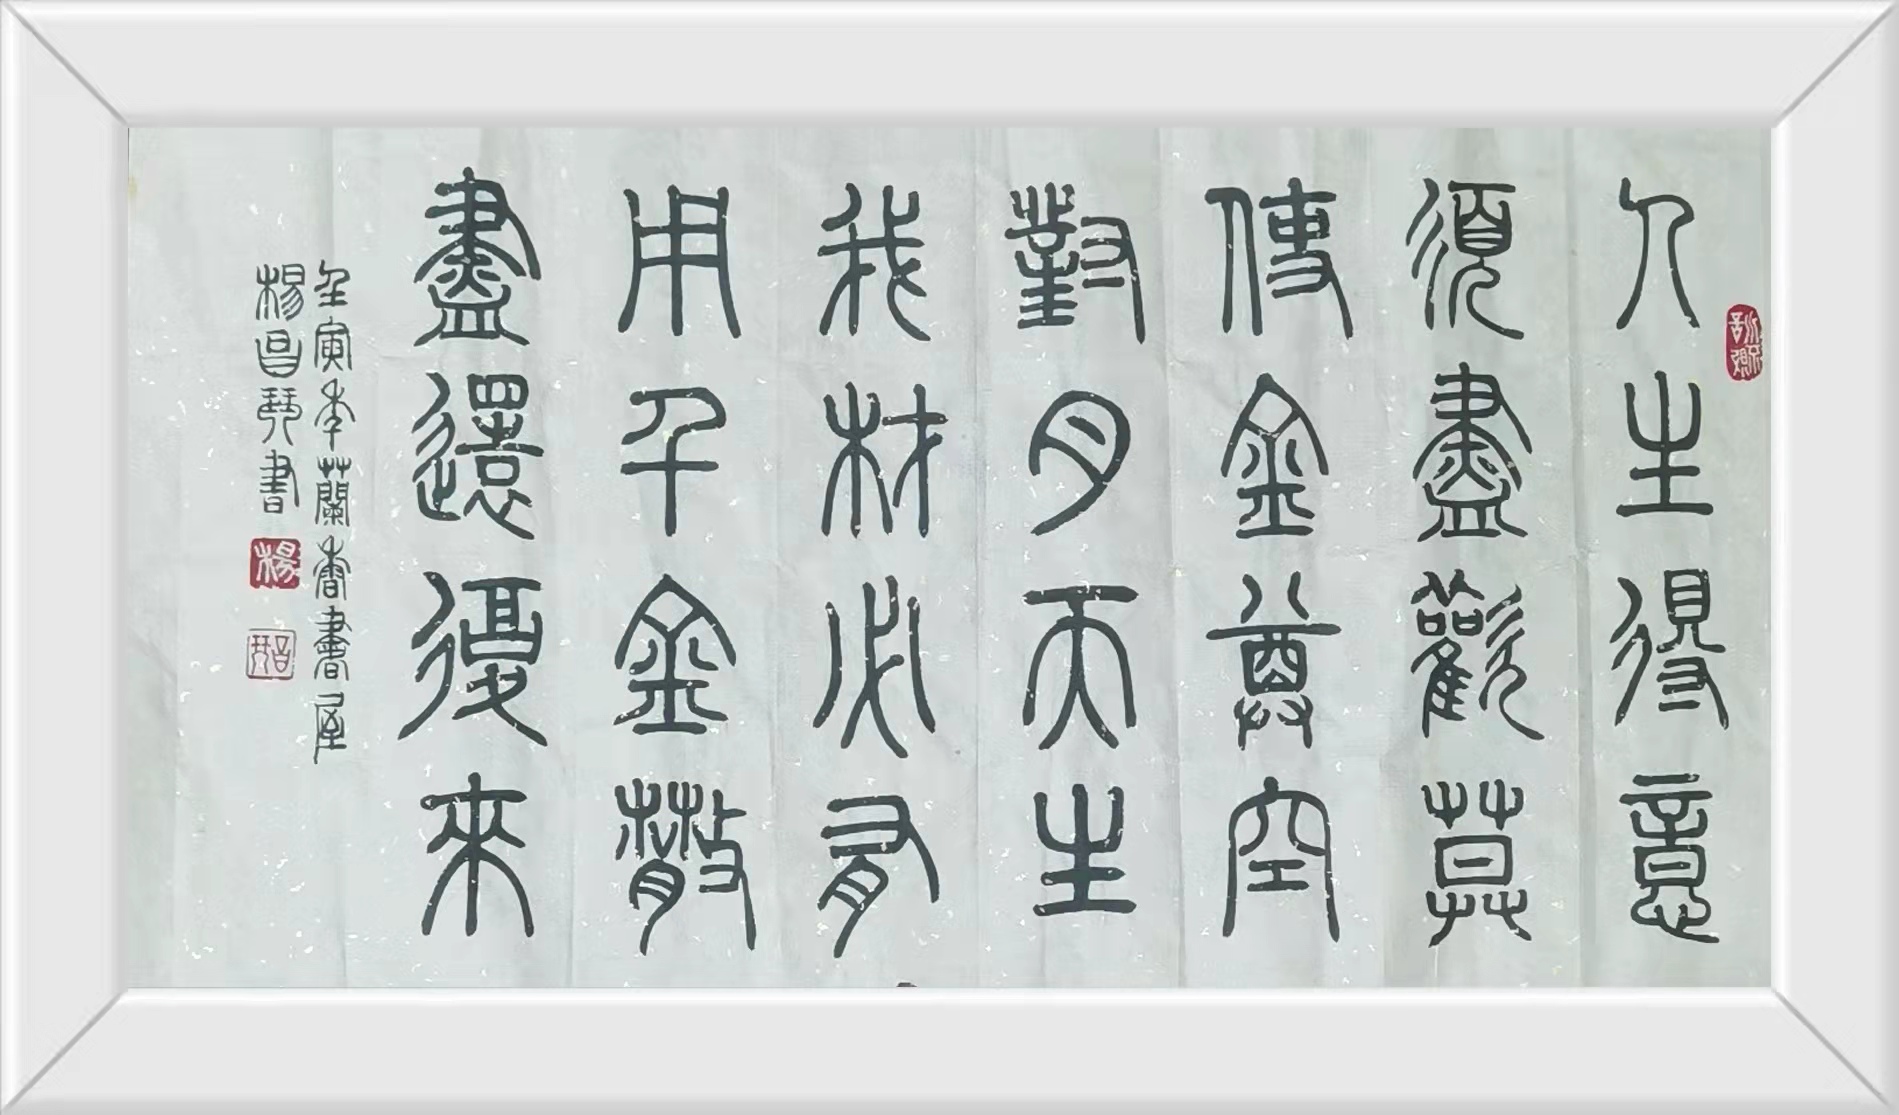 人生得意
須盡歡莫
使金尊空
對月天生
我材必有
用千金散
盡還復來
壬寅年蘭香書屋
楊昌琴書
楊